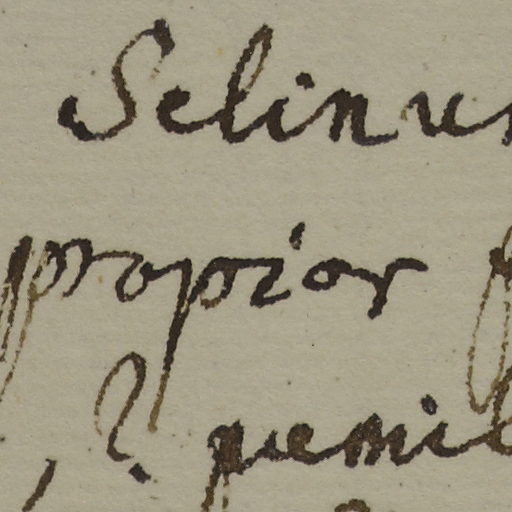 Selinu
propior
, ? pemil